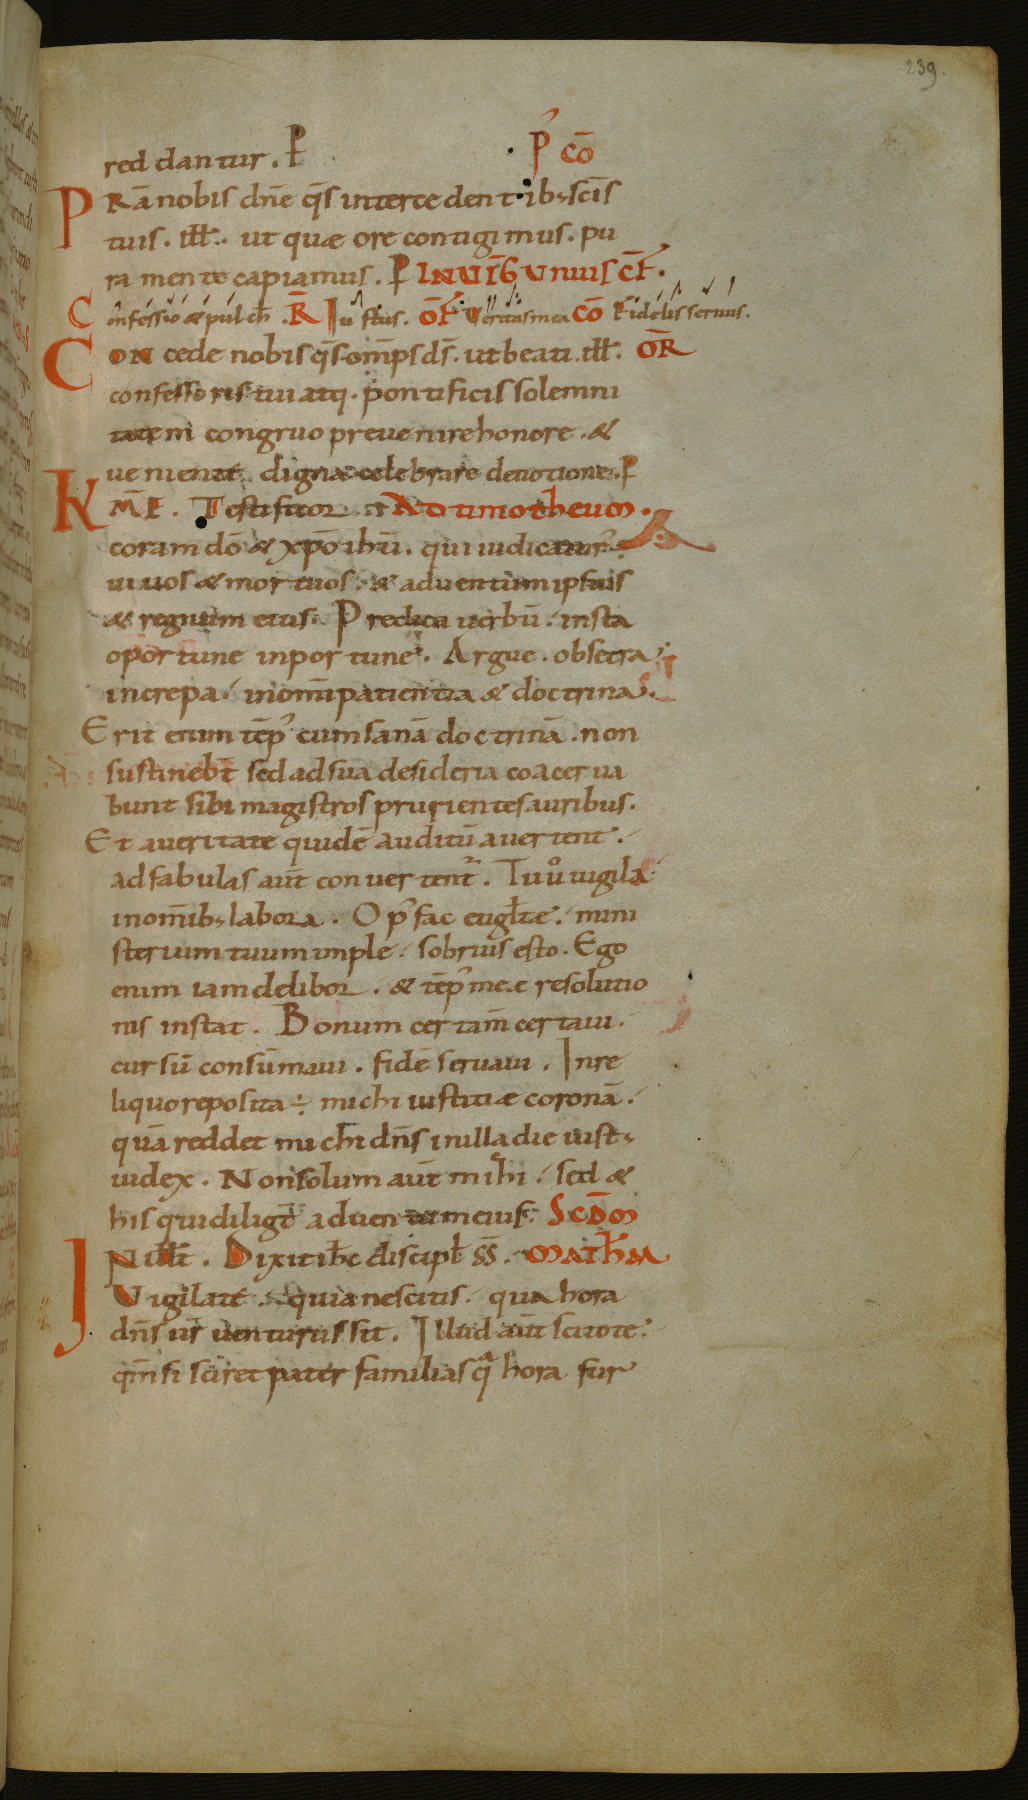 239.
reddantur. P̄ P' cō
PRā nobis dn̄e q̄s intercedentib; sc̄is
tuis. ill̄. ut quæ ore contigimus. pu
ra mente capiamus. P̄ IN UIḠ UNIUS CF̄.
Confessio & pulch̄. R̄ Iustus. OF̄ Veritas mea CŌ Fidelis seruus.
CONcede nobis q̄s omp̄s d̄s. ut beati. ill̄. OR̄
confessoris tui atq. pontificis solemni
tatem congruo preuenire honore. &
uenientē digna celebrare deuotione. P̄
KM̄E. Testificor AD timotheum.
coram dō & xp̄o ihū. qui iudicatur'
uiuos & mortuos. & aduentum ipsius
& regnum eius. Predica uerbū. insta
oportune inportune. Argue. obsecra.
increpa. in om̄i patientia & doctrina.
Erit enim tēp' cum sanā doctrinā. non
sustinebt̄ sed ad sua desideria coacerua
bunt sibi magistros prurientes auribus.
Et a ueritate quidē auditū auertent.
ad fabulas aūt conuertent̄. Tu u° uigila
in om̄ib; labora. Op' fac eugl̄te. mini
sterium tuum imple. sobrius esto. Ego
enim iam delibor. & tēp' meæ resolutio
nis instat. Bonum certam̄ certaui.
cursū consūmaui. fidē seruaui. In re
liquo reposita ÷ michi iustitiæ coronā.
quā reddet michi dn̄s in illa die iust;
iudex. Non solum aūt mihi. sed &
his qui diligt̄ aduentum eius. SCDM
IN ill̄ t̄. Dixit ih̄c discipl̄ ss̄. MATH̄M
Vigilate. quia nescitis. qua hora
dn̄s ur̄ uenturus sit. Illud aūt scitote.
qm̄ si sciret pater familias q̄ hora fur